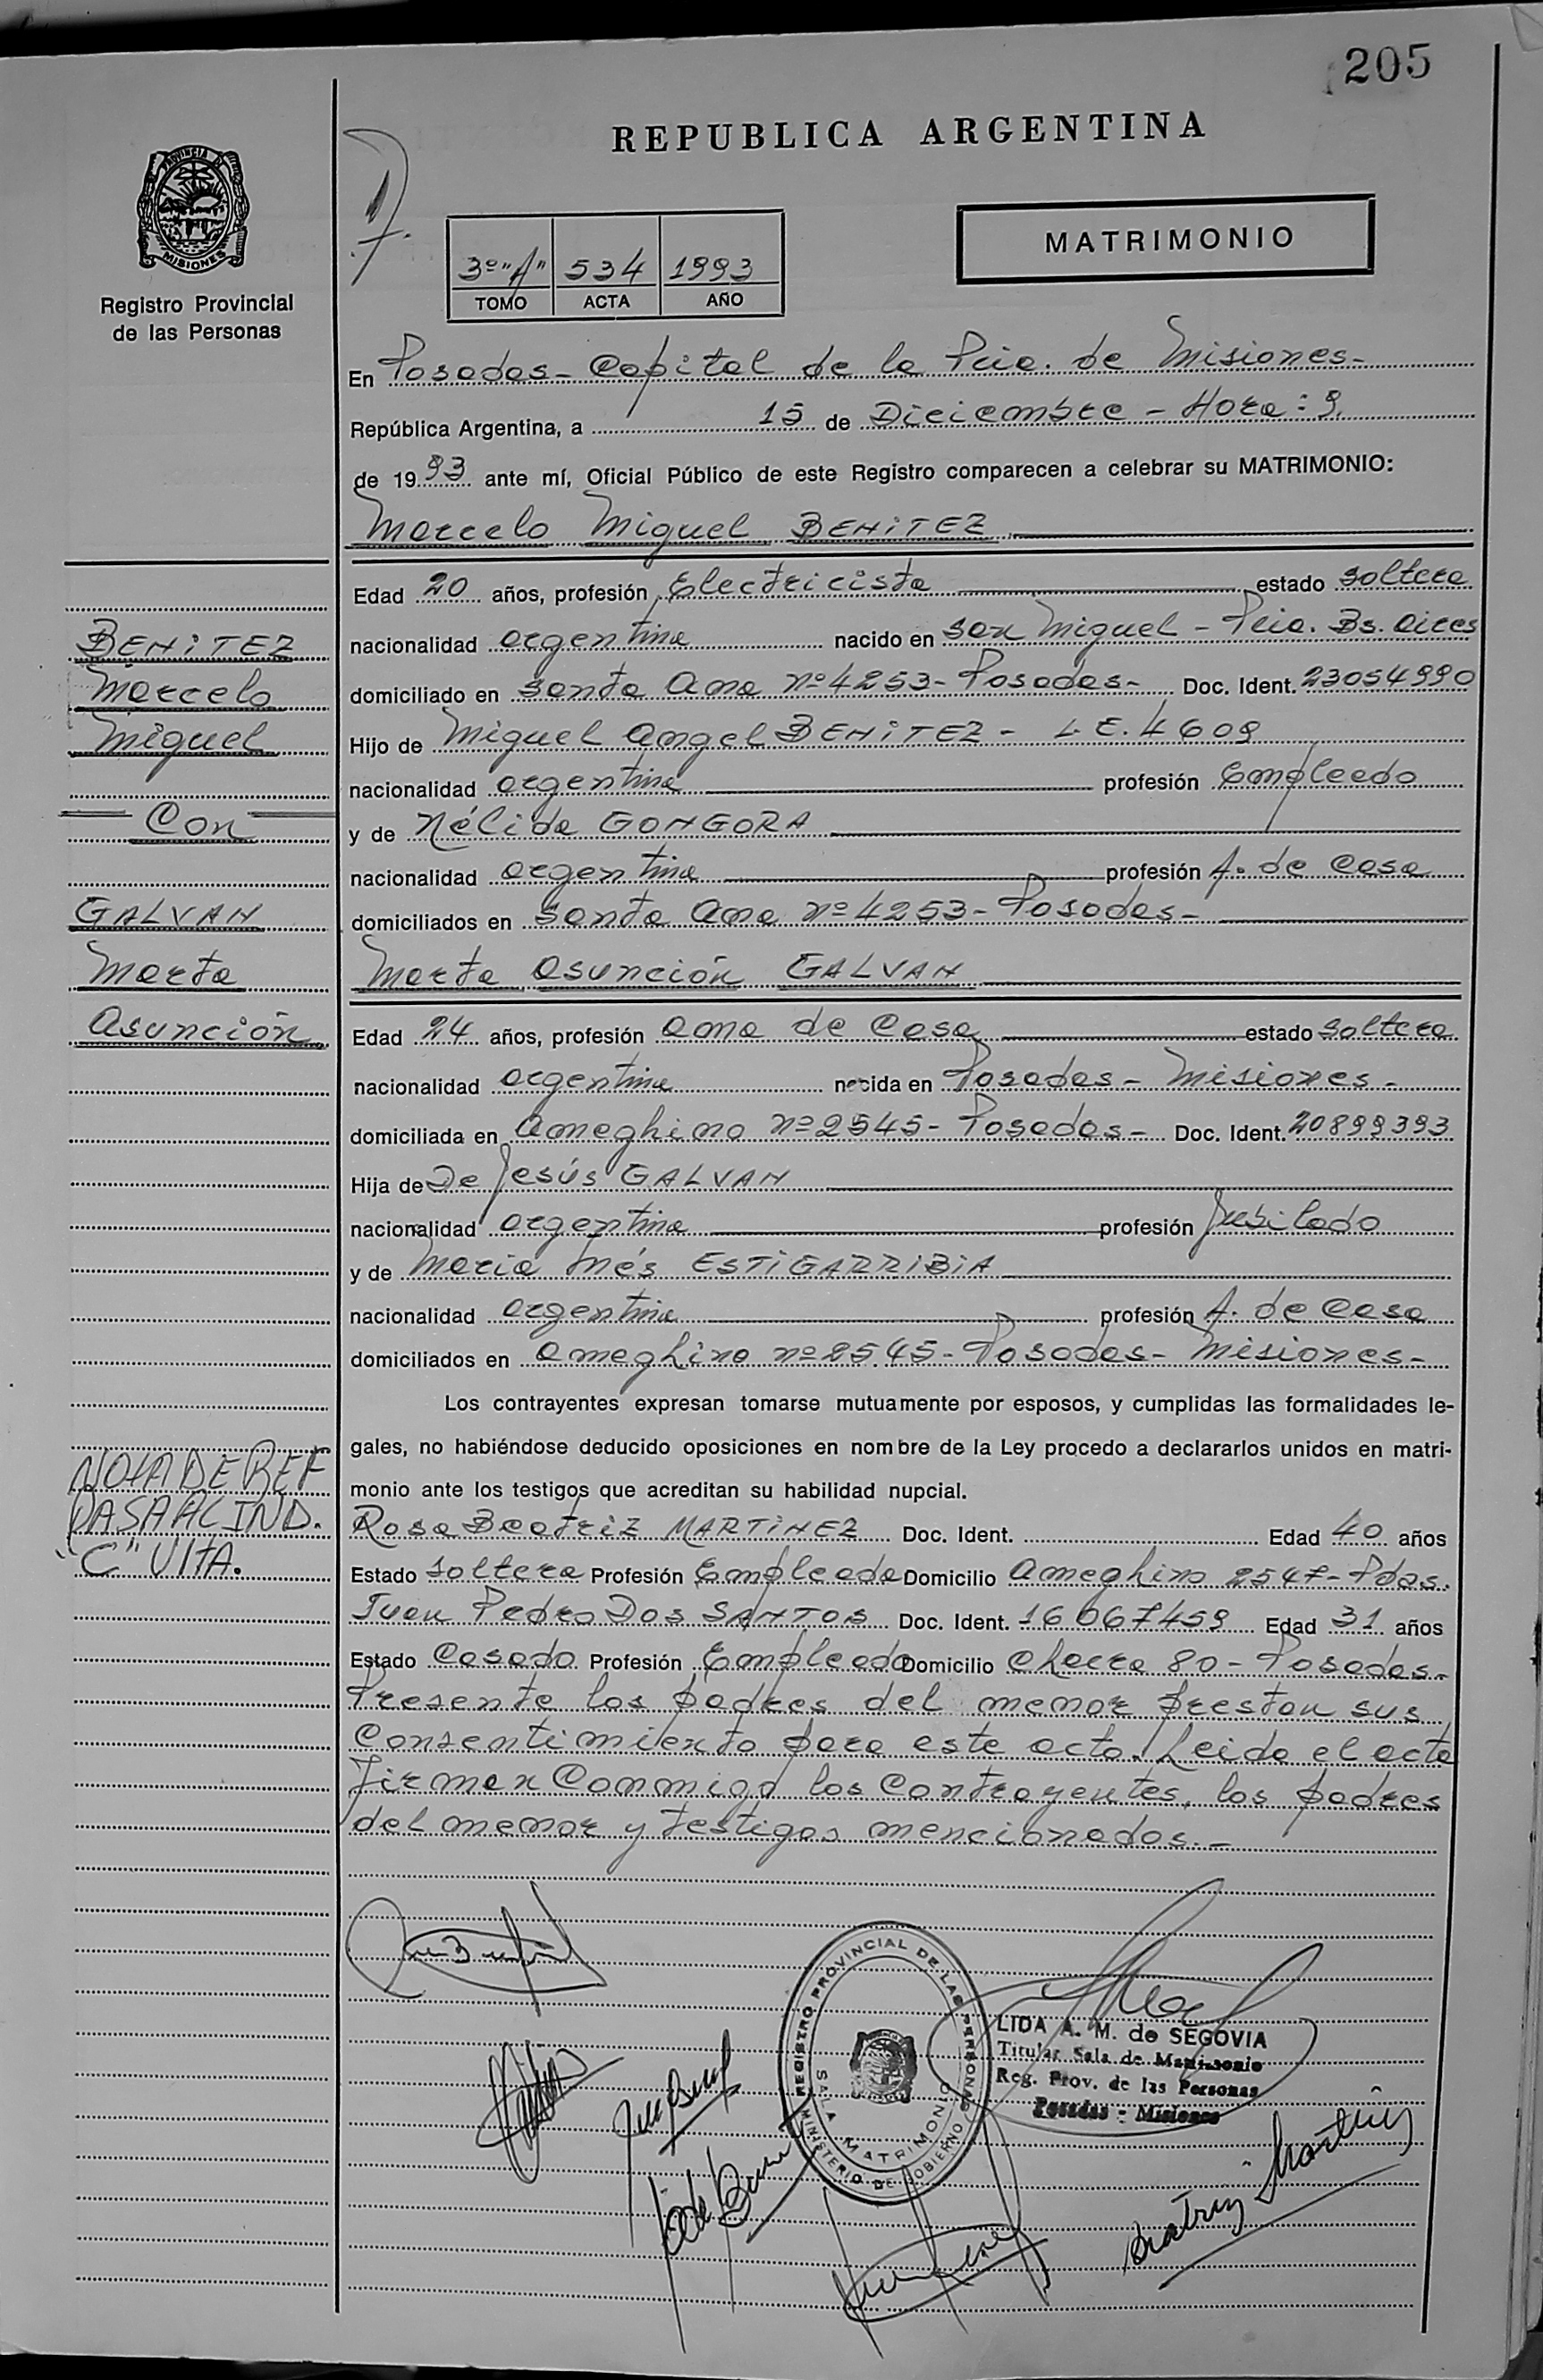 205
REPUBLICA ARGENTINA
PROVINCIA DE
MISIONES
Registro Provincial
de las Personas
MATRIMONIO
3º "A" 534 1993
TOMO ACTA AÑO
En Posadas - Capital de la Pcia. de Misiones -
República Argentina, a 15 de Diciembre - Hora: 9.
de 1993 ante mí, Oficial Público de este Registro comparecen a celebrar su MATRIMONIO:
Marcelo Miguel BENITEZ
Edad 20 años, profesión Electricista estado soltero
nacionalidad argentina nacido en San Miguel - Pcia. Bs. Aires
domiciliado en Santa Ana nº 4253 - Posadas - Doc. Ident. 23054990
Hijo de Miguel Angel BENITEZ - L.E. 4609
nacionalidad argentina profesión Empleado
y de Nélida GONGORA
nacionalidad argentina profesión A. de Casa
domiciliados en Santa Ana nº 4253 - Posadas -
Marta Asunción GALVAN
Edad 24 años, profesión Ama de Casa estado soltera
nacionalidad argentina nacida en Posadas - Misiones -
domiciliada en Ameghino nº 2545 - Posadas - Doc. Ident. 20899393
Hija de De Jesús GALVAN
nacionalidad argentina profesión Jubilado
y de María Inés ESTIGARRIBIA
nacionalidad argentina profesión A. de Casa
domiciliados en Ameghino nº 2545 - Posadas - Misiones -
Los contrayentes expresan tomarse mutuamente por esposos, y cumplidas las formalidades le-
gales, no habiéndose deducido oposiciones en nombre de la Ley procedo a declararlos unidos en matri-
monio ante los testigos que acreditan su habilidad nupcial.
Rosa Beatriz MARTINEZ Doc. Ident. Edad 40 años
Estado soltera Profesión Empleada Domicilio Ameghino 2547 - Pdas.
Juan Pedro DOS SANTOS Doc. Ident. 16067459 Edad 31 años
Estado Casado Profesión Empleado Domicilio Chacra 80 - Posadas -
Presente los padres del menor prestan sus
Consentimiento para este acto. Leida el acta
firman Conmigo los Contrayentes, los padres
del menor y testigos mencionados. -
BENITEZ
Marcelo
Miguel
Con
GALVAN
Marta
Asunción
NOTA DE REF
PASA AL IND.
"C" VITA.
REGISTRO PROVINCIAL DE LAS PERSONAS
SALA MATRIMONIO
MINISTERIO DE GOBIERNO
LIDA A. M. de SEGOVIA
Titular Sala de Matrimonio
Reg. Prov. de las Personas
Posadas - Misiones
Beatriz Martínez